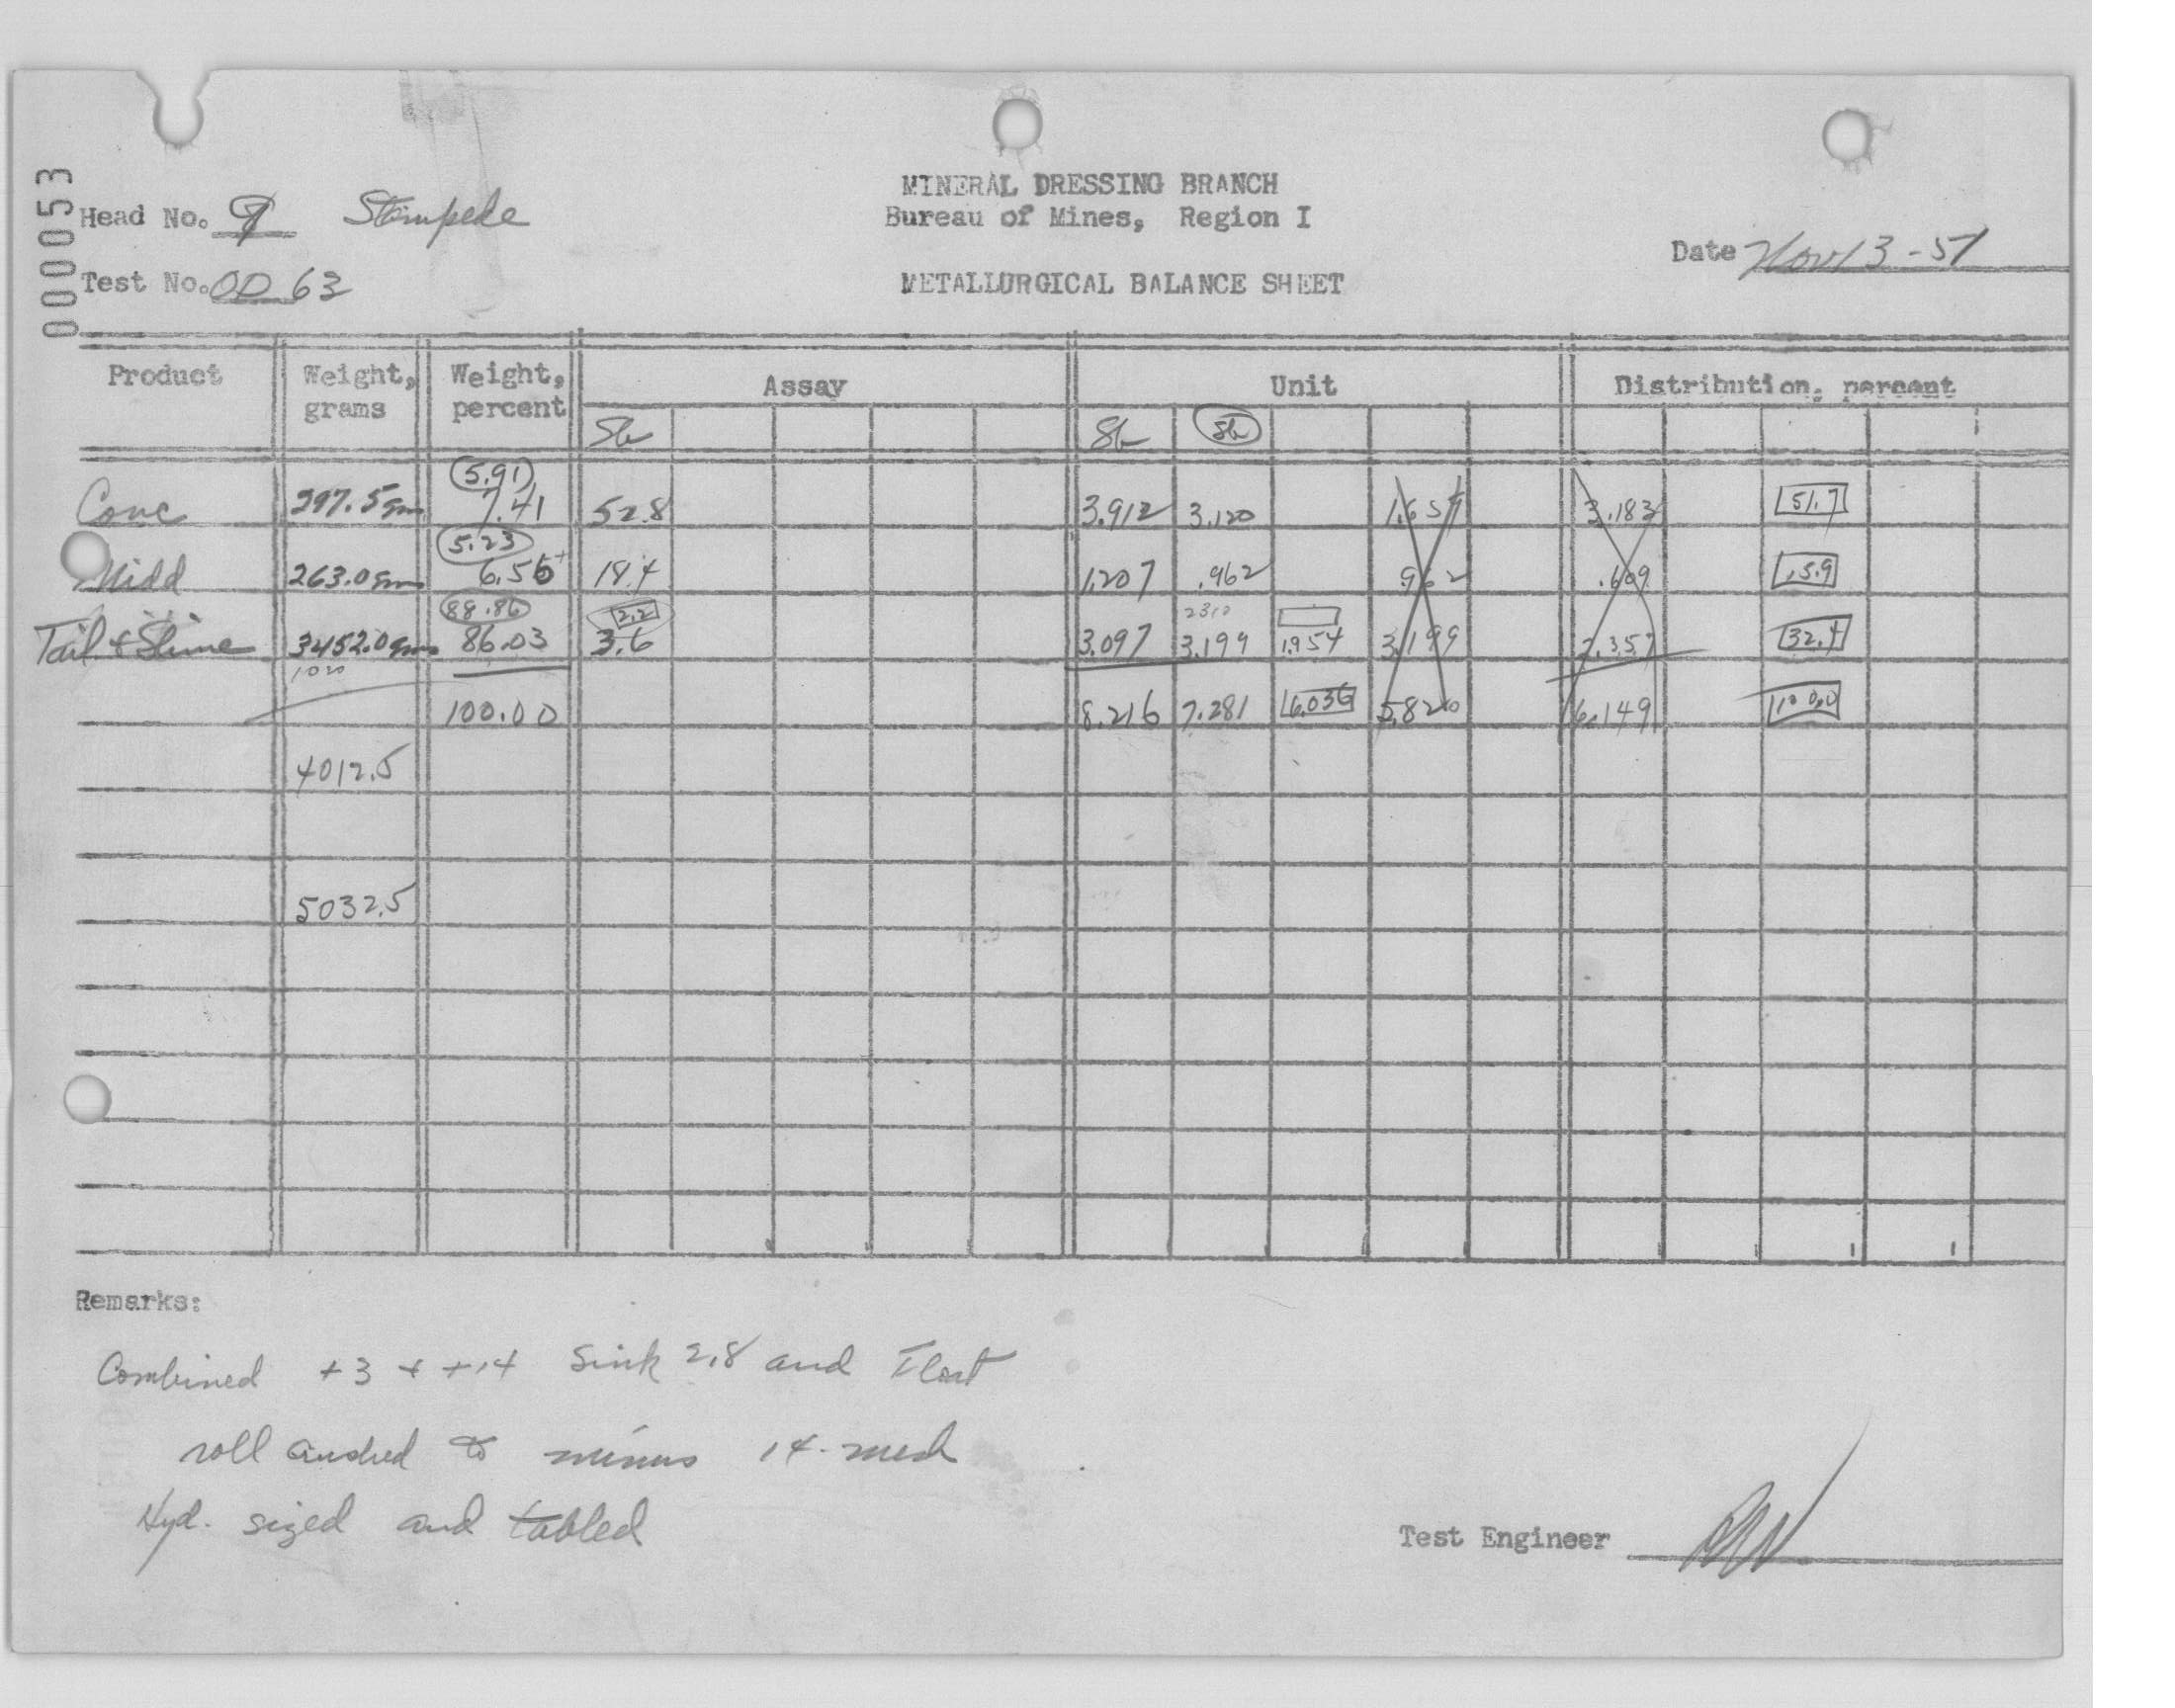 000053
MINERAL DRESSING BRANCH
Head No. 9 Stampede
Bureau of Mines, Region I
Date Nov 13-51
Test No. OD 63
METALLURGICAL BALANCE SHEET
Product Weight, grams Weight, percent Assay Unit Distribution, percent
Sb Sb Sb
5.91
Conc 297.5 gm 7.41 52.8 3.912 3.120 3.183 51.7
5.23
Midd 263.0 gm 6.56 18.4 1.207 .962 .962 .609 15.9
88.86 2.2 2310
Tail & Slime 3452.0 gm 86.03 3.6 3.097 3.199 1.954 3.199 2.357 32.4
1020
100.00 8.216 7.281 6.036 5.820 6.149 100.0
4012.5
5032.5
Remarks:
Combined +3 + +14 Sink 2.8 and Float
roll crushed to minus 14-mesh
Hyd. sized and tabled
Test Engineer